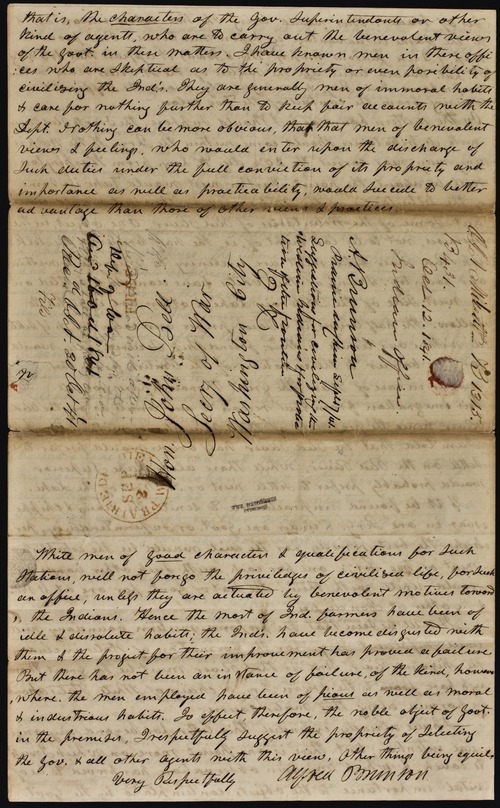 that is, the characters of the Gov. Superintendants or other
kind of agents, who are to carry out the benevolent views
of the Govt. in these matters. I have known men in these offi
:ces who are skeptical as to the propriety or even posibility of
civilizing the Ind's. They are generally men of immoral habits
& care for nothing further than to keep fair accounts with the
Dept. Nothing can be more obvious, that that men of benevolent
views & feelings, who would enter upon the discharge of
such duties under the full conviction of its propriety and
importance as well as practicability, would succede to better
advantage than those of other views & practices.
B 1315.
Recd. Oct. 12. 1841.
Indian Office.
A. Brunson
Prairie du chien Sept
Suggestions for civilizing the
Hon. John
Secy of War
Washington City
D. C.
PRAIRIE DU
SEP
White men of good characters & qualifications for such
stations, will not forego the priviledges of civilised life, for such
an office, unless they are actuated by benevolent motives toward
the Indians. Hence the most of Ind. farmers have been of
idle & dissolute habits; the Inds. have become disgusted with
them & the project for their improvement has proved a failure.
But there has not been an instance of failure, of the kind, however
, where the men employed have been of pious as well as moral
& industrious habits. To effect, therefore, the noble object of Govt.
in the premises, I respectfully suggest the propriety of selecting
the Gov. & all other agents with this view. Other things being equil.
Very Respectfully
Alfred Brunson